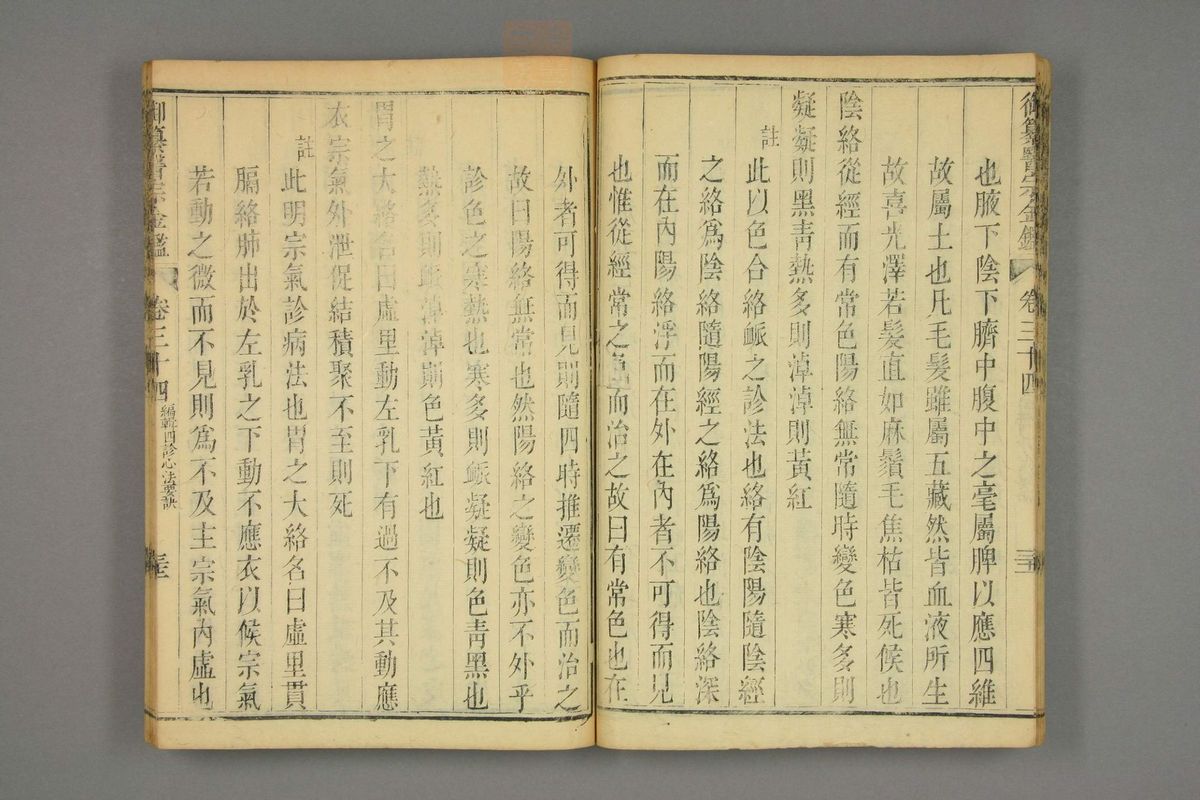 御纂醫宗金鑑 卷三十四
也腋下陰下臍中腹中之毫屬脾以應四維
故屬土也凡毛髮雖屬五藏然皆血液所生
故喜光澤若髮直如麻鬚毛焦枯皆死候也
陰絡從經而有常色陽絡無常隨時變色寒多則
凝凝則黑青熱多則淖淖則黃紅
註
此以色合絡䘑之診法也絡有陰陽隨陰經
之絡爲陰絡隨陽經之絡爲陽絡也陰絡深
而在內陽絡浮而在外在內者不可得而見
也惟從經常之色而治之故曰有常色也在
外者可得而見則隨四時推遷變色而治之
故曰陽絡無常也然陽絡之變色亦不外乎
診色之寒熱也寒多則䘑凝凝則色靑黑也
熱多則䘑淖淖則色黃紅也
胃之大絡名曰虛里動左乳下有過不及其動應
衣宗氣外泄促結積聚不至則死
註
此明宗氣診病法也胃之大絡名曰虛里貫
膈絡肺出於左乳之下動不應衣以候宗氣
若動之微而不見則爲不及主宗氣內虛也
御纂醫宗金鑑 卷三十四 編輯四診心法要訣